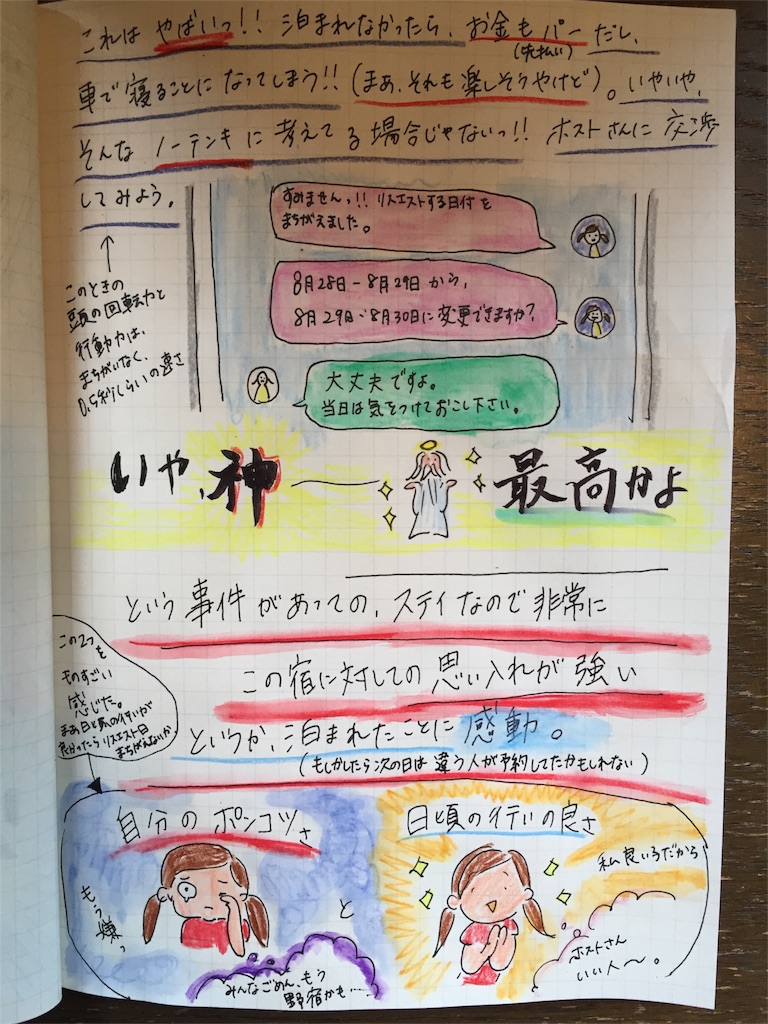 これは やばいっ!! 泊まれなかったら、お金もパーだし、
(先払い)
車で寝ることに なってしまう!! (まあ、それも楽しそうやけど)。いやいや、
そんな ノーテンキ に 考えてる場合じゃないっ!! ホストさんに 交渉
してみよう。
↑
このときの
頭の回転力と
行動力は、
まちがいなく、
0.5秒くらいの速さ
すみませんっ!! リクエストする日付を
まちがえました。
8月28日-8月29日 から、
8月29日-8月30日に変更できますか?
大丈夫ですよ。
当日は気をつけてお越し下さい。
いや、神ー
最高かよ
という 事件 があっての、ステイなので 非常に
この宿に対しての 思い入れが 強い
というか、泊まれたことに 感動。
(もしかしたら次の日は 違う人が予約してたかもしれない)
この2つを
ものすごい
感じた。
まぁ日と頃の行いが
良かったら リクエスト日
まちがえないが
自分の ポンコツさ
もう嫌っ
みんなごめん、もう
野宿かも…
と
日頃の行いの良さ
ホストさん
いい人〜。